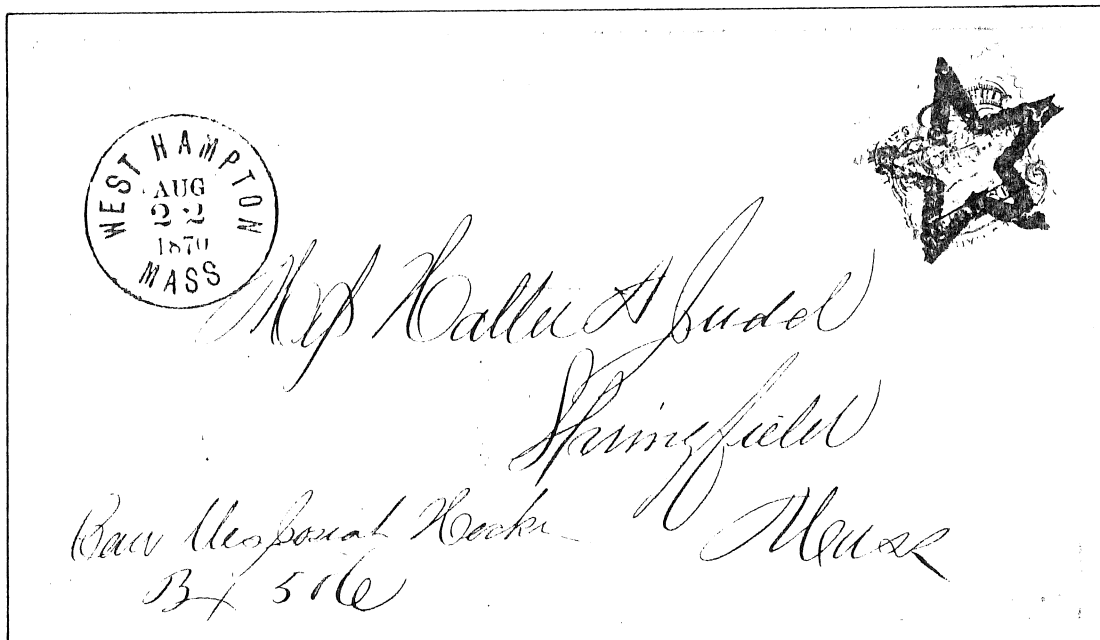 WEST HAMPTON
AUG
22
1870
MASS
Miss Hattie A Judd
Springfield
Mass
Care Mrs Josiah Hooker
Bx 516